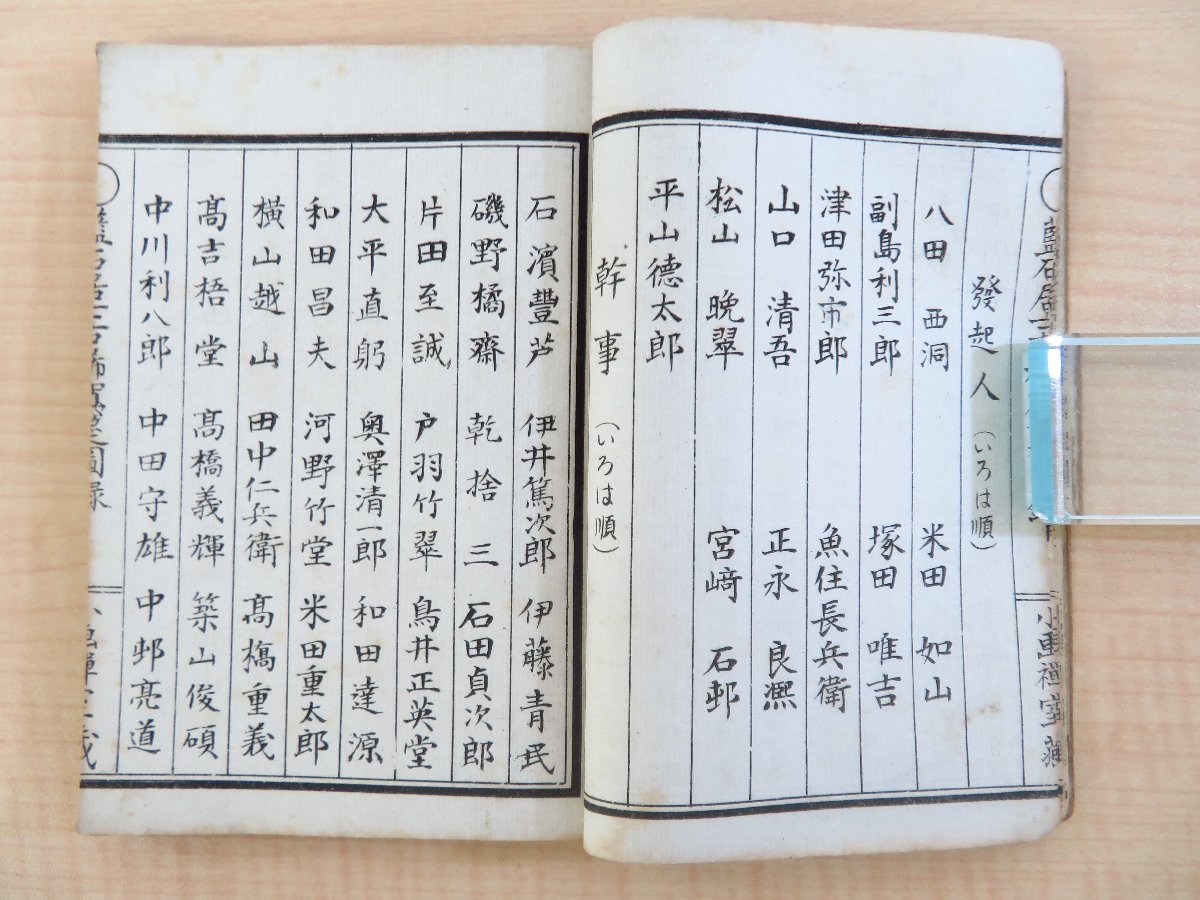 發起人 (いろは順)
八田 西洞 米田 如山
副島利三郎 塚田 唯吉
津田弥市郎 魚住長兵衛
山口 清吾 正永 良凞
松山 晩翠 宮﨑 石邨
平山德太郎
幹事 (いろは順)
石濱豐芦 伊井篤次郎 伊藤青民
磯野橘齋 乾捨三 石田貞次郎
片田至誠 戸羽竹翠 鳥井正英堂
大平直躬 奥澤清一郎 和田達源
和田昌夫 河野竹堂 米田重太郎
横山越山 田中仁兵衛 髙橋重義
髙吉梧堂 髙橋義輝 築山俊碩
中川利八郎 中田守雄 中邨亮道